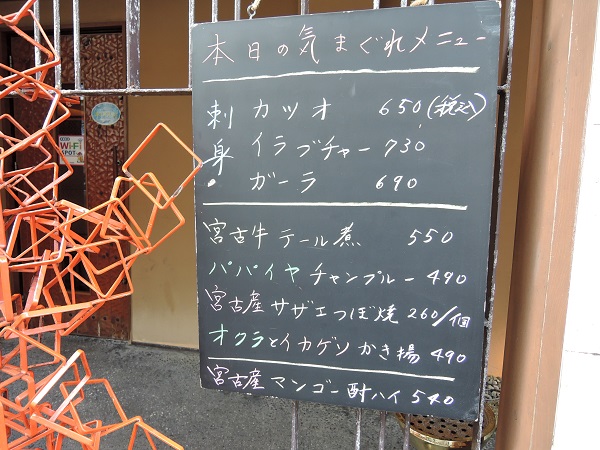 本日の気まぐれメニュー
刺身・
カツオ 650(税込)
イラブチャー 730
ガーラ 690
宮古牛テール煮 550
パパイヤチャンプルー 490
宮古産サザエつぼ焼 260/個
オクラとイカゲソかき揚 490
宮古産マンゴー酎ハイ 540
Wi-Fi